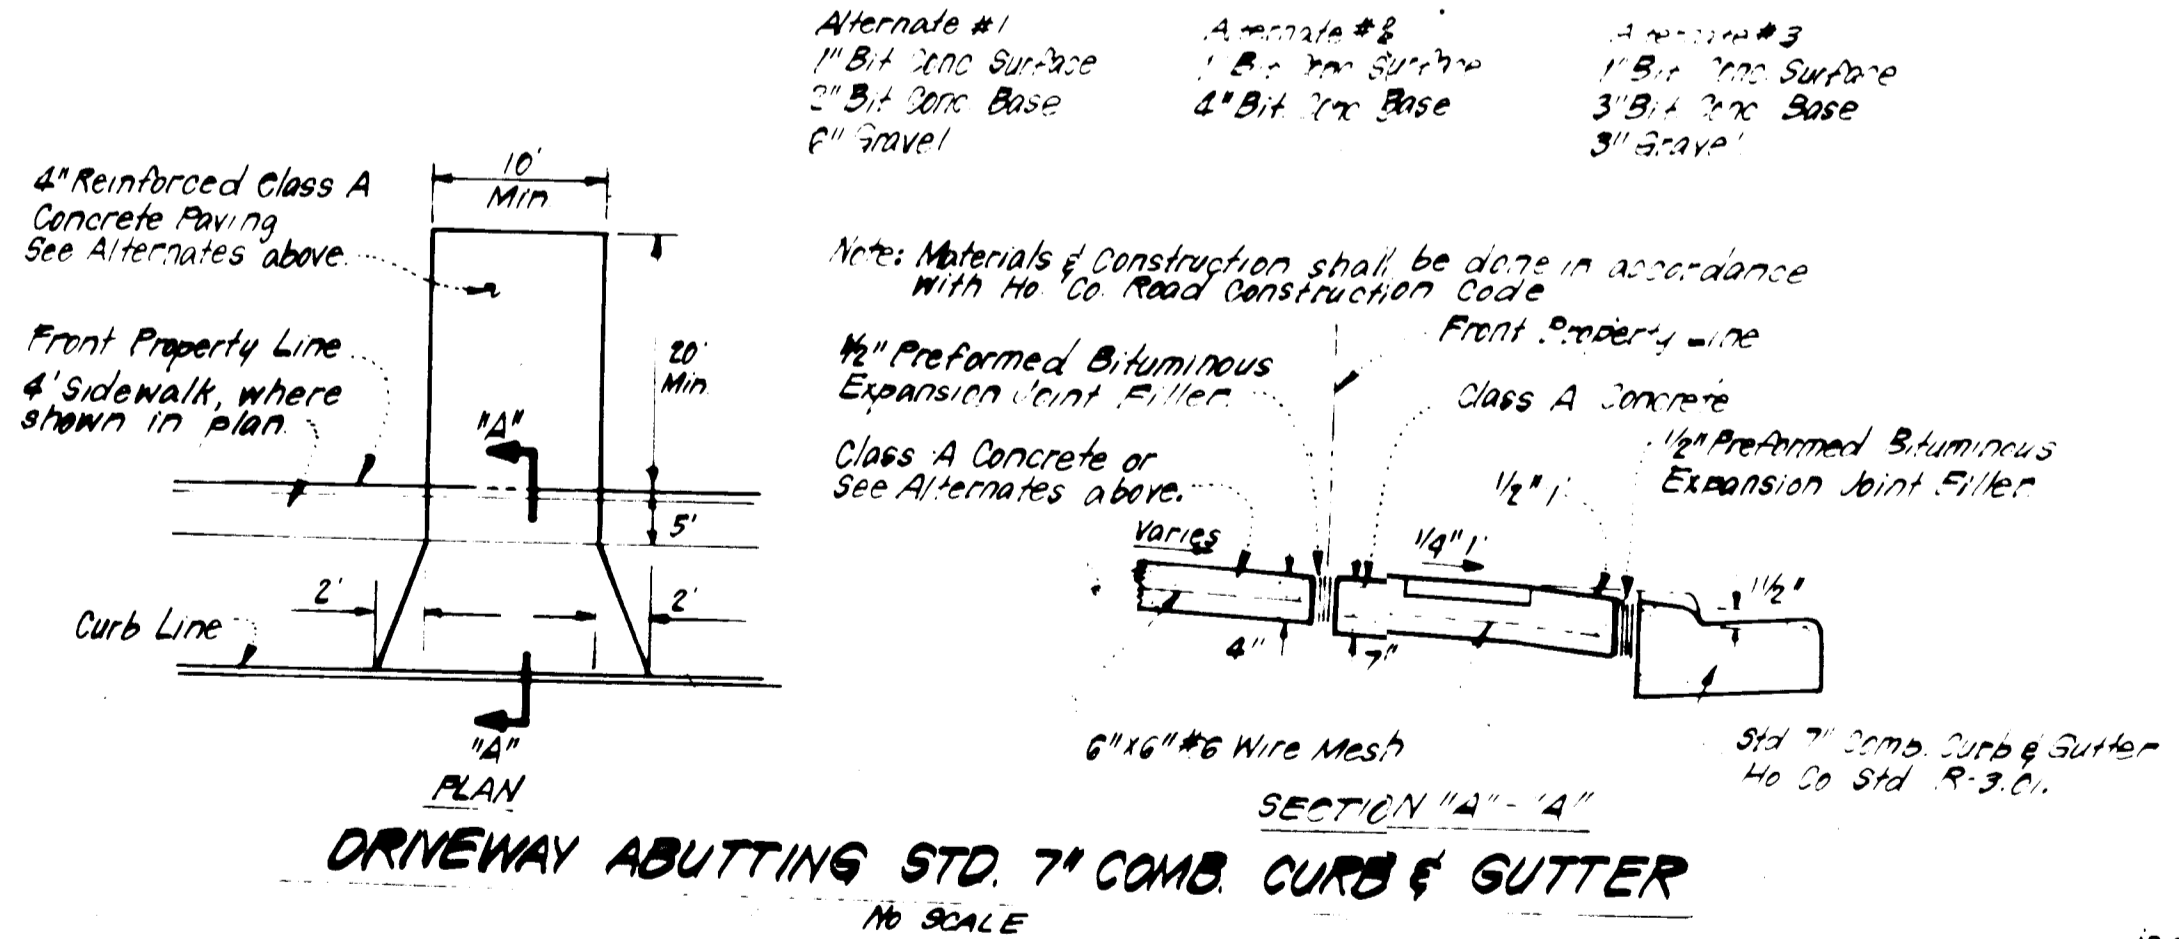 Alternate #1
1" Bit Conc Surface
2" Bit Conc. Base
6" Gravel
Alternate #2
1" Bit Conc Surface
4" Bit Conc Base
Alternate #3
1" Bit Conc. Surface
3" Bit Conc Base
3" Gravel
4" Reinforced Class A
Concrete Paving
See Alternates above.
10'
Min
Front Property Line
4' Sidewalk, where
shown in plan.
20'
Min.
"A"
5'
2'
2'
Curb Line
"A"
PLAN
Note: Materials & Construction shall be done in accordance
with Ho. Co. Road Construction Code
Front Property Line
1/2" Preformed Bituminous
Expansion Joint Filler
Class A Concrete
Class A Concrete or
See Alternates above.
1/2" Preformed Bituminous
Expansion Joint Filler
1/2" 1'
Varies
1/4" 1'
1 1/2"
4"
7"
6"x6" #6 Wire Mesh
Std 7" Comb. Curb & Gutter
Ho Co Std R-3.01.
SECTION "A"-"A"
DRIVEWAY ABUTTING STD. 7" COMB. CURB & GUTTER
NO SCALE